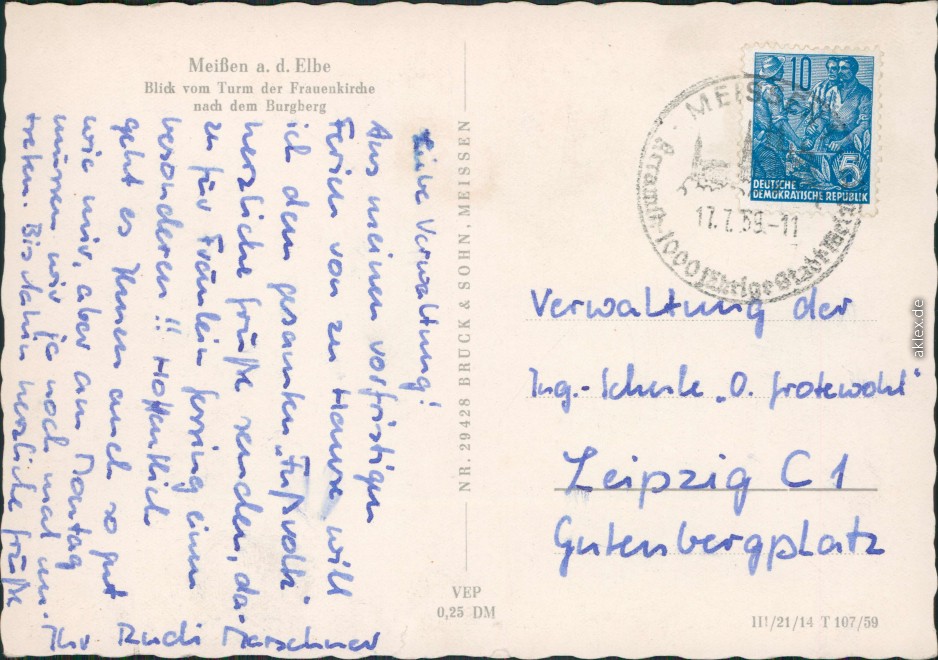 Meißen a. d. Elbe
Blick vom Turm der Frauenkirche
nach dem Burgberg
Liebe Verwaltung!
Aus meinen vorfristigen
Ferien von zu Hause will
ich dem gesamten „Fußvolk"
herzliche Grüße senden, da-
zu für Fräulein einen
besonderen!! Hoffentlich
geht es Ihnen auch so gut
wie mir, aber am Montag
müssen wir ja noch mal an-
treten. Bis dahin herzliche Grüße
Ihr Rudi Marschner
NR. 29428 BRÜCK & SOHN, MEISSEN
VEP
0,25 DM
10
5
DEUTSCHE
DEMOKRATISCHE REPUBLIK
MEISSEN
17.7.59.-11
1000jährige Stadt
Verwaltung der
Ing.-Schule „O. Grotewohl"
Leipzig C 1
Gutenbergplatz
III/21/14 T 107/59
aklex.de